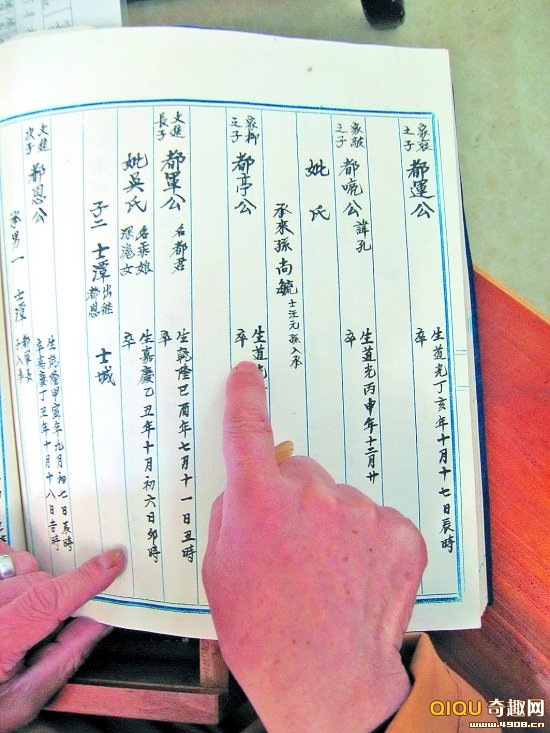 之子 都運公 生道光丁亥年十月十七日辰時
卒
之子 都唬公 諱孔 生道光丙申年十二月廿
卒
妣 氏
承來孫 尚毓 士汪元孫入承
象柳之子 都亭公 生道光
卒
文進長子 都軍公 名都君 生乾隆己酉年七月十一日丑時
卒
妣吳氏 名乘娘 深滬女 生嘉慶乙丑年十月初六日卯時
卒
子二 士潭 出繼都恩 士城
文進次子 都恩公 生乾隆甲寅年九月初七日辰時
卒嘉慶丁丑年十月十八日吉時
承男一 士潭 都軍長子入承
QIQU 奇趣网
www.4908.cn